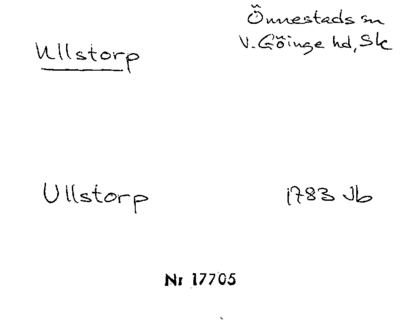 Ullstorp
Önnestads sn
V. Göinge hd, Sk
Ullstorp
1783 Jb
Nr 17705